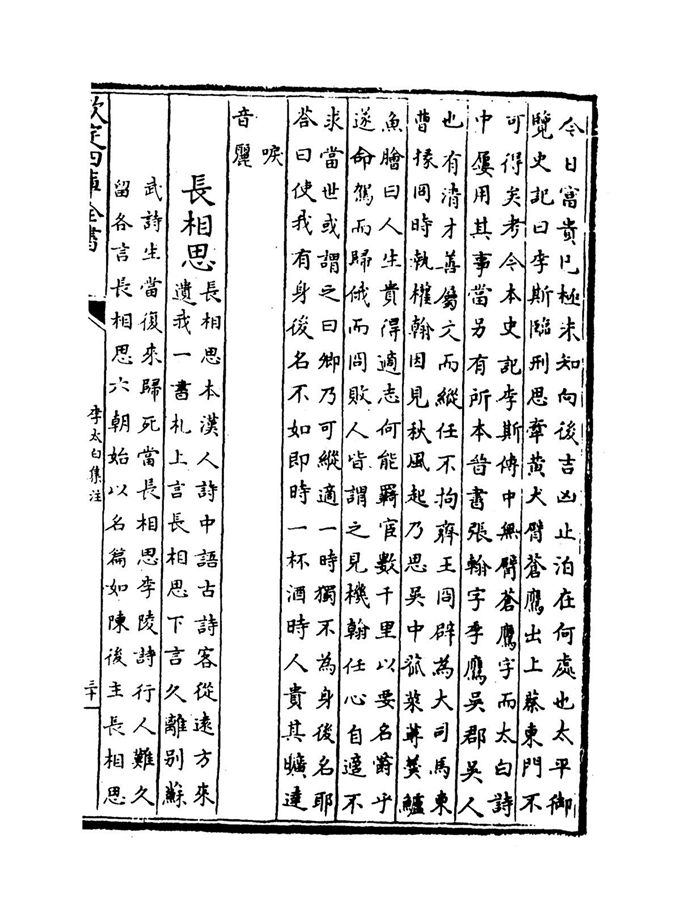 今日富貴已極未知向後吉凶止泊在何處也太平御
覽史記曰李斯臨刑思牽黃犬臂蒼鷹出上蔡東門不
可得矣考今本史記李斯傳中無臂蒼鷹字而太白詩
中屢用其事當另有所本晉書張翰字季鷹吳郡吳人
也有清才善屬文而縱任不拘齊王冏辟為大司馬東
曹掾冏時執權翰因見秋風起乃思吳中菰菜蓴羮鱸
魚膾曰人生貴得適志何能羈宦數千里以要名爵乎
遂命駕而歸俄而冏敗人皆謂之見機翰任心自適不
求當世或謂之曰卿乃可縱適一時獨不為身後名耶
答曰使我有身後名不如即時一杯酒時人貴其曠達
唳
音麗
長相思
長相思本漢人詩中語古詩客從遠方來
遺我一書札上言長相思下言久離別蘇
武詩生當復來歸死當長相思李陵詩行人難久
留各言長相思六朝始以名篇如陳後主長相思
欽定四庫全書
李太白集注
三十